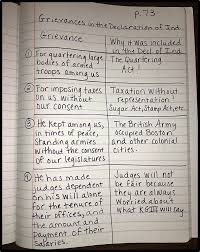 p. 73
Grievances in the Declaration of Ind.
Grievance
Why it was included in the Decl of Ind
① For quartering large bodies of armed troops among us
The Quartering Act!
② For imposing taxes on us without our consent
Taxation without representation! Sugar Act, Stamp Act, etc.
③ He kept among us, in times of peace, Standing armies without the consent of our legislatures
The British Army occupied Boston and other colonial cities.
① He has made judges dependent on his will alone for the tenure of their offices, and the amount and payment of their salaries.
Judges will not be fair because they are always worried about what KGIII will say.